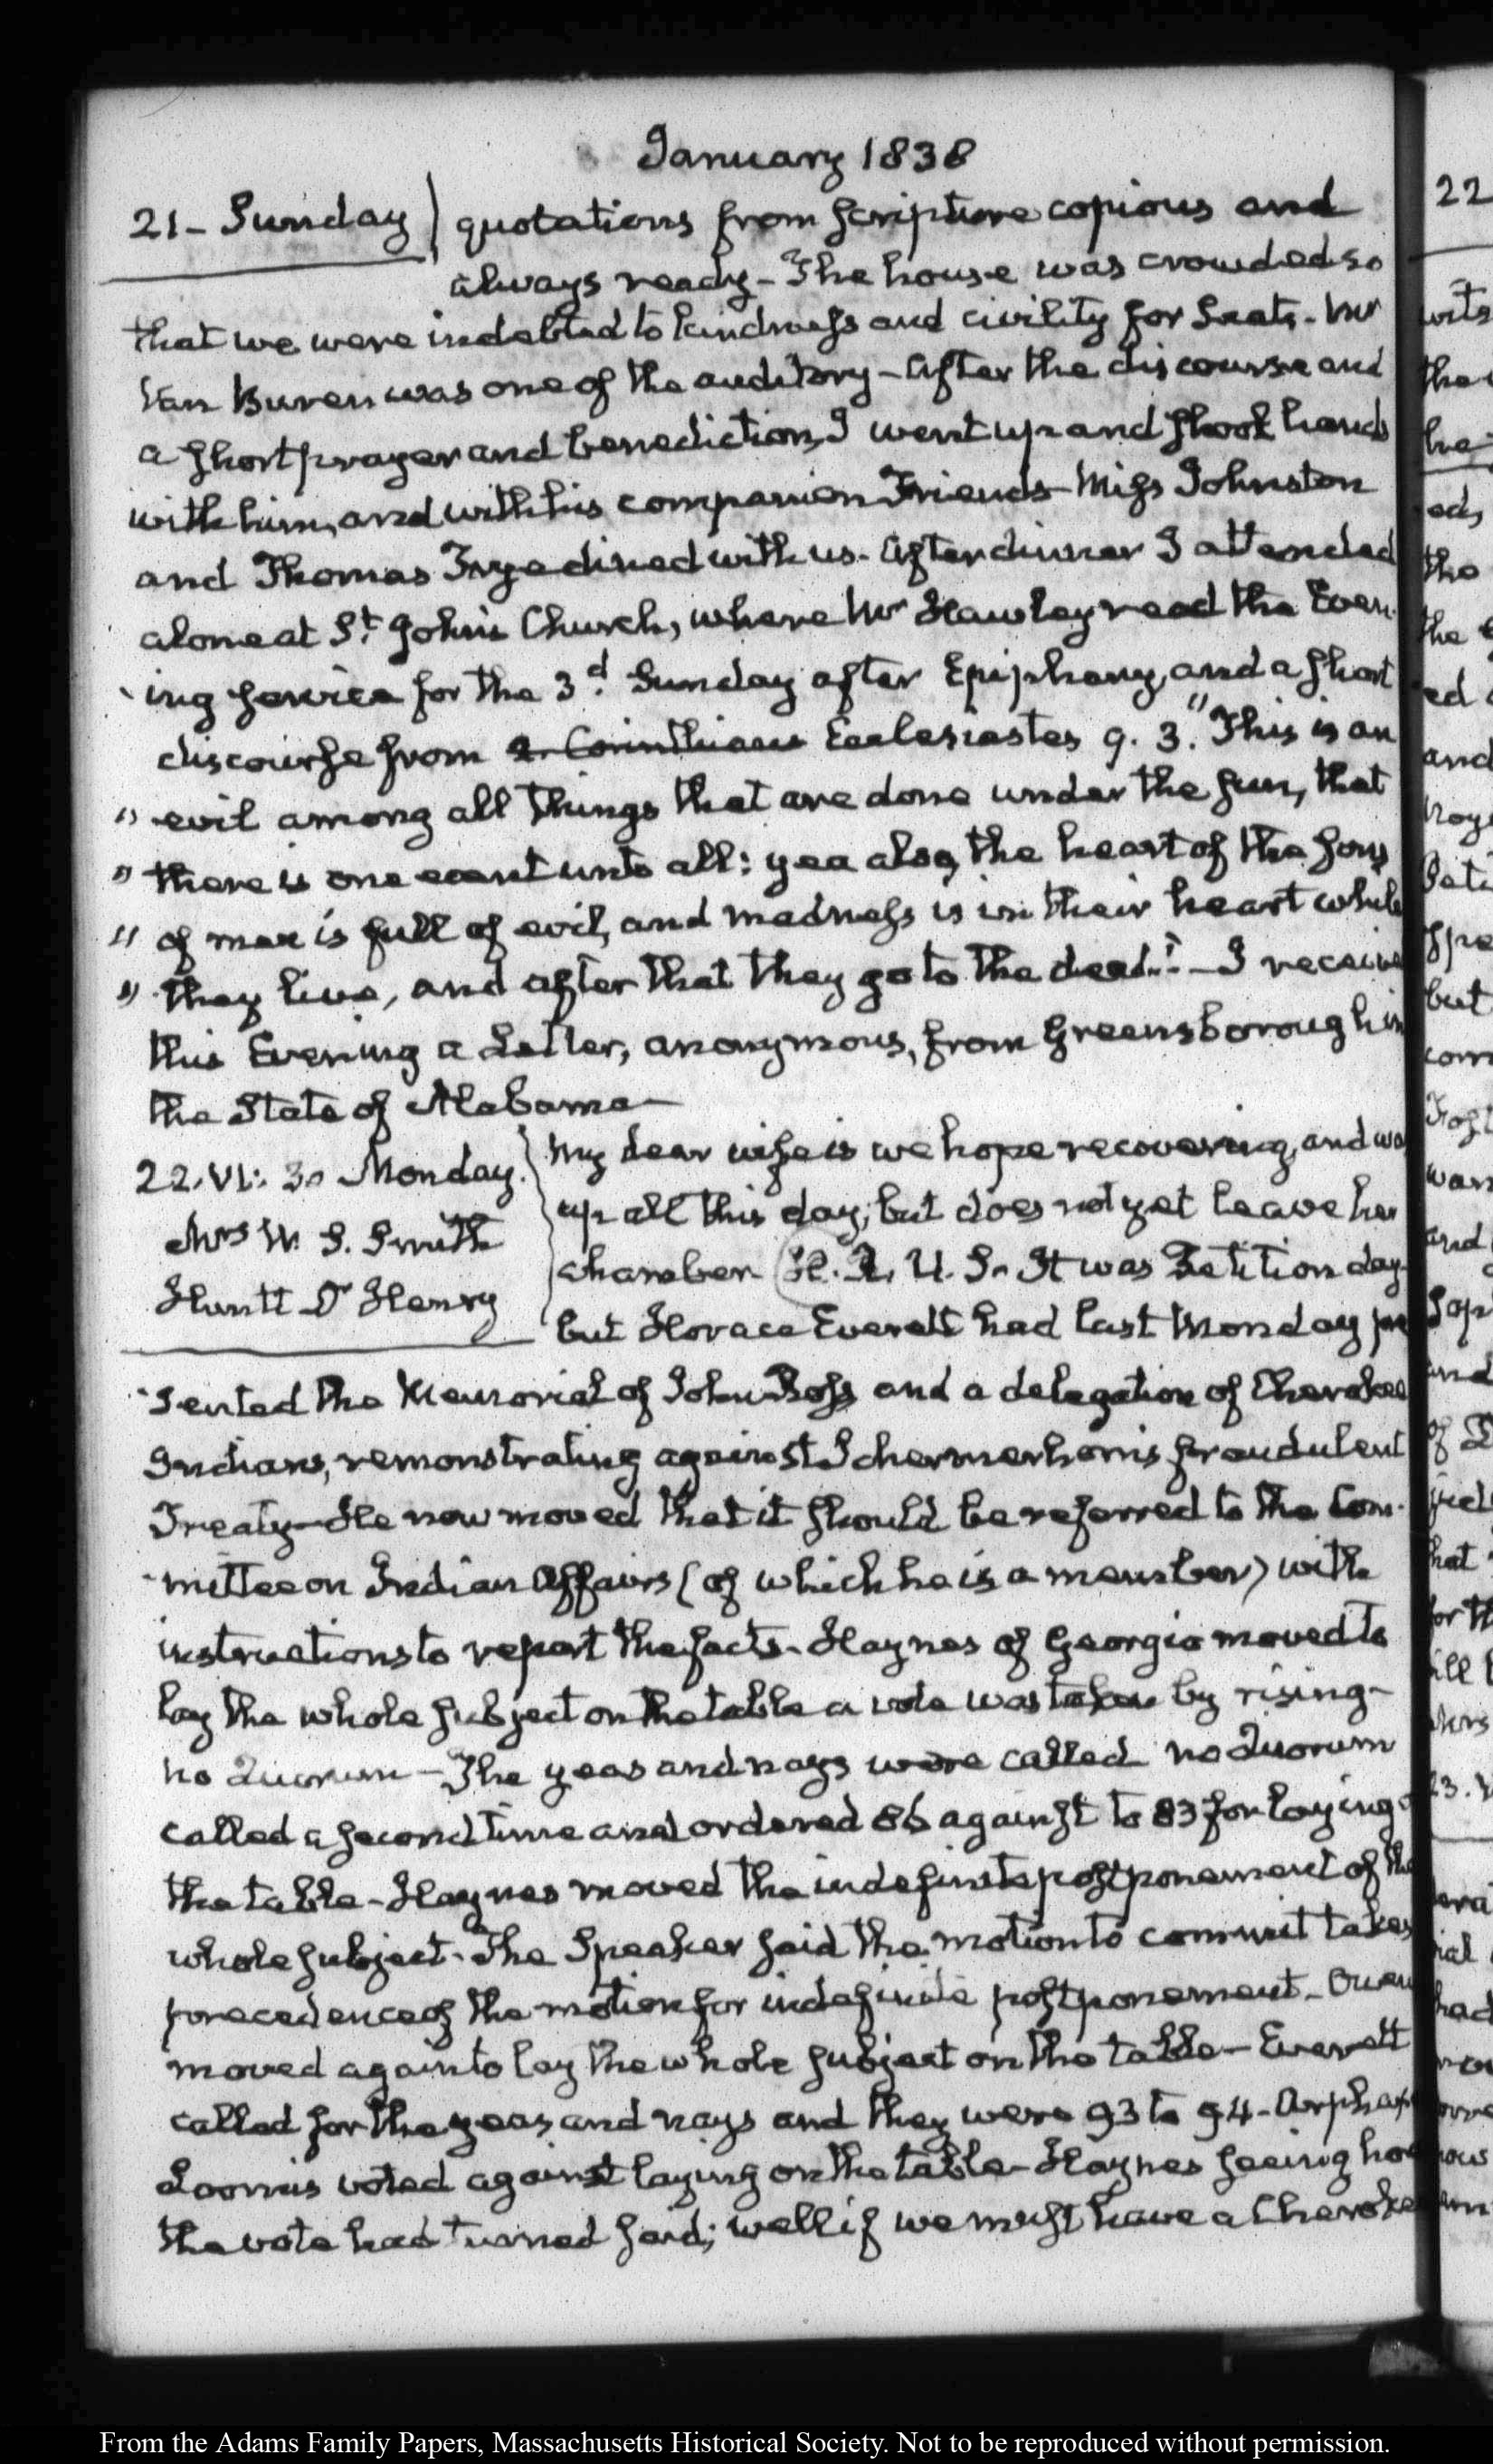 January 1838
21- Sunday) quotations from Scripture copious and
always ready- The house was crowded so
that we were indebted to kindness and civility for Seats- Mr
Van Buren was one of the auditory- After the discourse and
a short prayer and benediction, I went up and shook hands
with him, and with his companion Friends- Miss Johnston
and Thomas Frye dined with us- After dinner I attended
alone at St. John's Church, where Mr Hawley read the Even-
ing service for the 3d. Sunday after Epiphany, and a short
discourse from 2. Corinthians Ecclesiastes 9. 3. "This is an
" evil among all things that are done under the sun, that
" there is one event unto all: yea also, the heart of the sons
" of men is full of evil, and madness is in their heart while
" they live, and after that they go to the dead." - I receive
this Evening a Letter, anonymous, from Greensborough in
the State of Alabama-
22. VI: 30 Monday. My dear wife is we hope recovering, and wa
Mrs W. S. Smith up all this day, but does not yet leave her
Huntt Dr Henry chamber- H. R. U. S. It was Petition day-
but Horace Everett had last Monday pre
sented the Memorial of John Ross and a delegation of Cherokee
Indians, remonstrating against Schermerhorn's fraudulent
Treaty- He now moved that it should be referred to the Com-
mittee on Indian Affairs (of which he is a member) with
instructions to report the facts- Haynes of Georgia moved to
lay the whole subject on the table a vote was taken by rising-
no Quorum- The yeas and nays were called no Quorum
called a second time and ordered 86 against to 83 for laying
the table- Haynes moved the indefinite postponement of the
whole subject- The Speaker said the motion to commit takes
precedence of the motion for indefinite postponement- Owen
moved again to lay the whole subject on the table- Everett
called for the yeas and nays and they were 93 to 94- Arphax
Loomis voted against laying on the table- Haynes seeing how
the vote had turned said; well if we must have a Cherokee
22